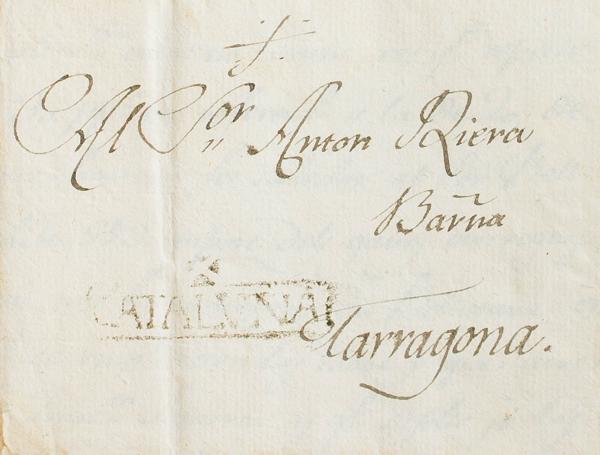 Al S.or Anton Riera
Barña
CATALUÑA
Tarragona.